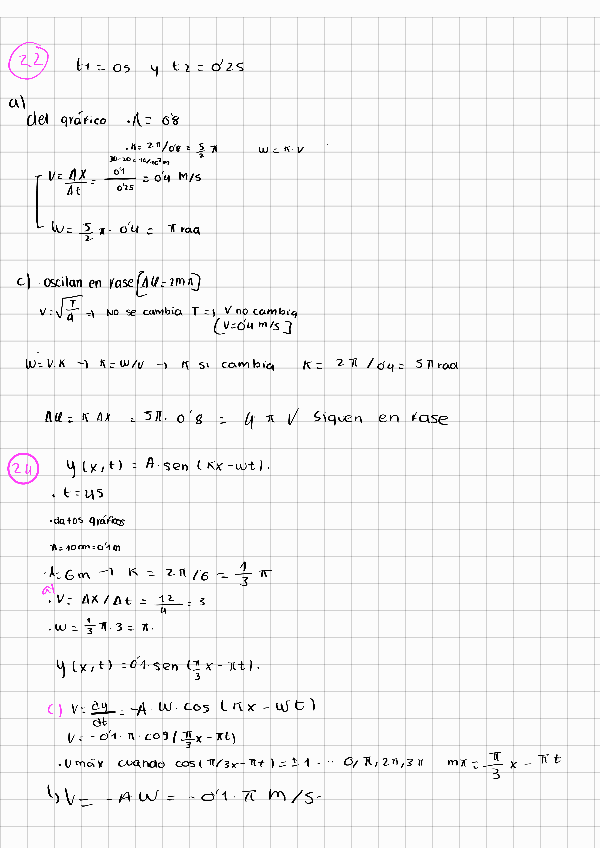 22
t1 = 0s y t2 = 0'25
a)
del gráfico . λ = 0'8
. K = 2π/0'8 = 5/2 π W = K·V
V = ΔX/Δt = 0'1/0'25 = 0'4 M/S
W = 5/2 π · 0'4 = π rad
c) . oscilan en fase [Δφ = 2mπ]
V = √T/μ → No se cambia T =, V no cambia
[V = 0'4 m/s]
W = V.K → K = W/V → K si cambia K = 2π / 0'4 = 5π rad
Δφ = K ΔX = 5π · 0'8 = 4 π √ Siguen en fase
24
y (x, t) = A · sen (Kx - wt).
. t = 4s
. datos gráficos
A = 10cm = 0'1 m
. λ = 6m → K = 2π/6 = 1/3 π
a)
. V = ΔX/Δt = 12/4 = 3
. W = 1/3 π · 3 = π.
y (x, t) = 0'1 · sen (π/3 x - πt).
c) V = ∂y/∂t = -A · W · cos (Kx - Wt)
V = -0'1 · π · cos (π/3 x - πt)
. Vmáx cuando cos (π/3x - πt) = ±1 ... 0, π, 2π, 3π mπ = π/3 x - πt
b) V = - A W = - 0'1 · π M/S.